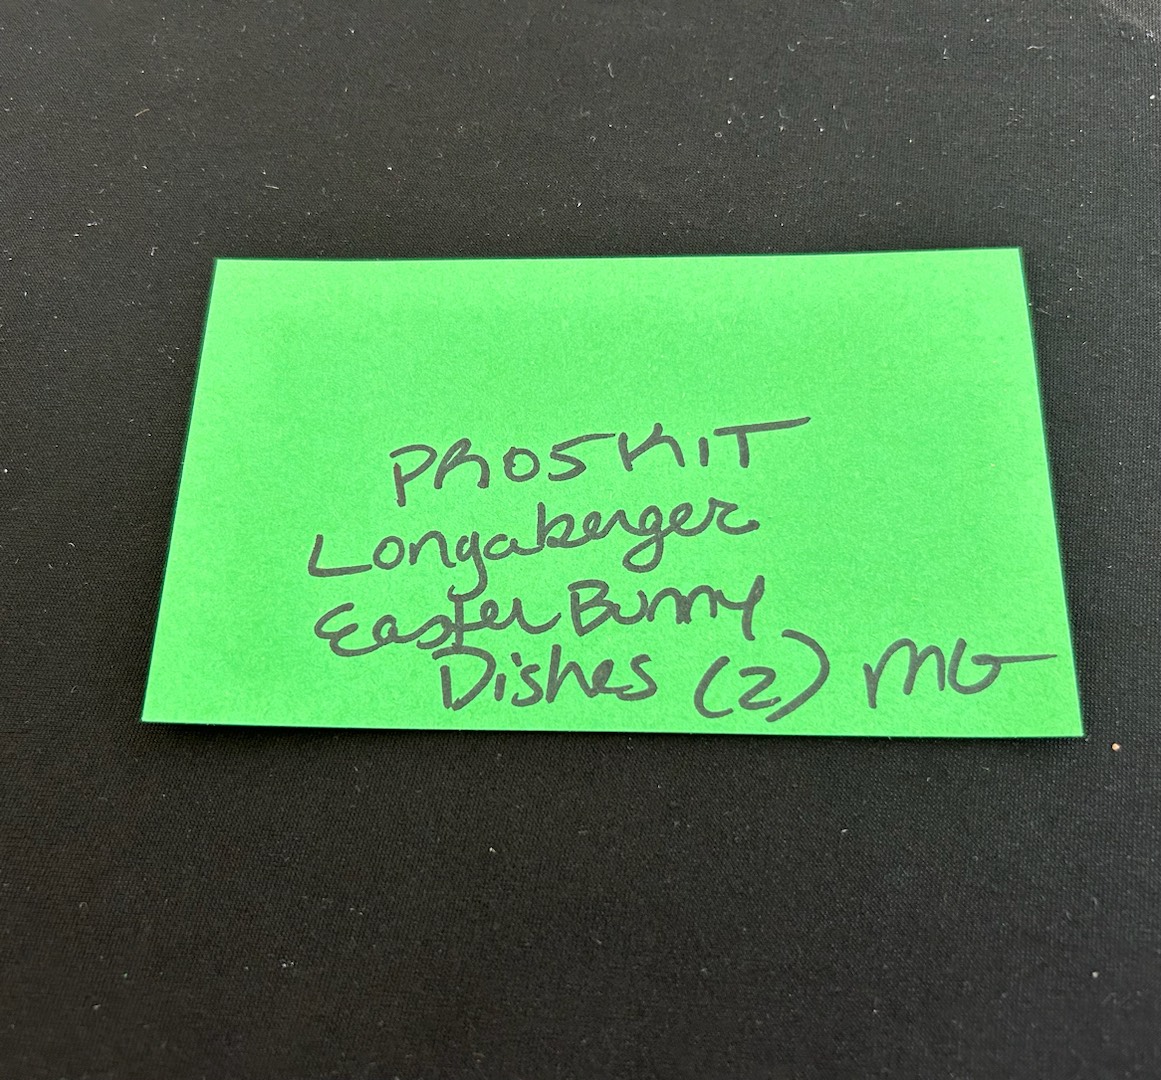 PROSKIT
Longaberger
Easter Bunny
Dishes (2) MG